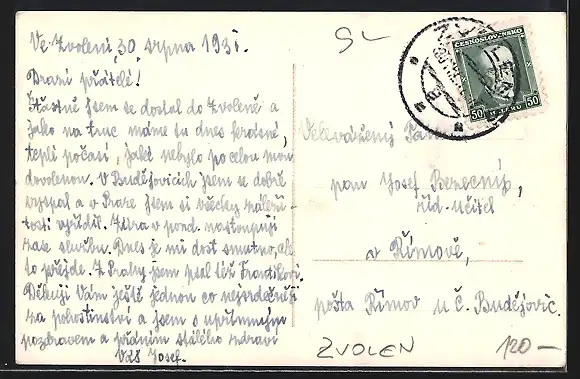 Ve Zvoleni, 30 srpna 1931.
Drazí přátelé!
Šťastně jsem se dostal do Zvoleně a
jako na truc máme tu dnes krásné,
teplé počasí, jaké nebylo po celou mou
dovolenou. V Budějovicích jsem se dobře
vyspal a v Praze jsem si všecky záleži-
tosti vyřídil. Zítra v pond. nastoupuji
zase službu. Dnes je mi dost smutno, ale
to přejde. Z Prahy jsem psal též Frantíkovi.
Děkuji Vám ještě jednou co nejsrdečněji
za pohostinství a jsem s upřímným
pozdravem a přáním stálého zdraví
Váš Josef.
SL
ČESKOSLOVENSKO
50 50
Velevážený Pan
pan Josef
říd. učitel
v Římově,
pošta Římov u Č. Budějovic.
ZVOLEN
120-